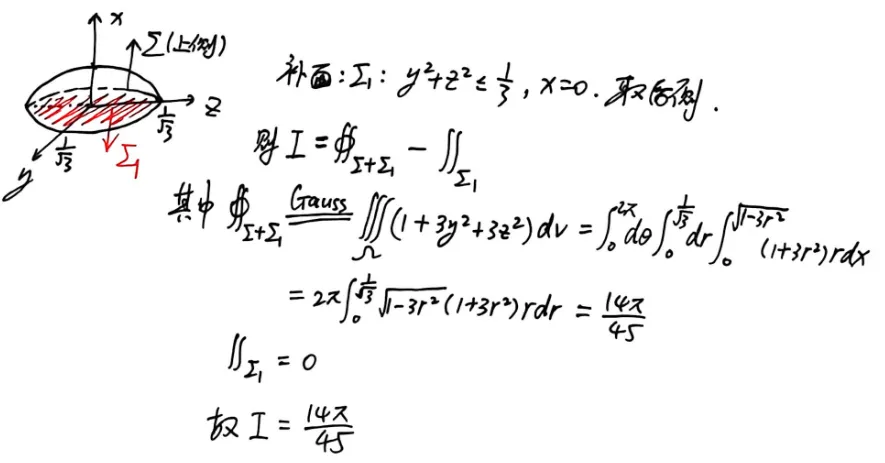 x
Σ(上侧)
z
1/√3
1/√3
y
Σ₁
补面:Σ₁: y²+z²≤1/3, x=0. 取后侧.
则 I = ∯_{Σ+Σ₁} − ∬_{Σ₁}
其中 ∯_{Σ+Σ₁} Gauss ∭_Ω (1+3y²+3z²)dv = ∫₀^{2π}dθ∫₀^{1/√3}dr∫₀^{√(1-3r²)}(1+3r²)rdx
= 2π∫₀^{1/√3}√(1-3r²)(1+3r²)rdr = 14π/45
∬_{Σ₁} = 0
故 I = 14π/45